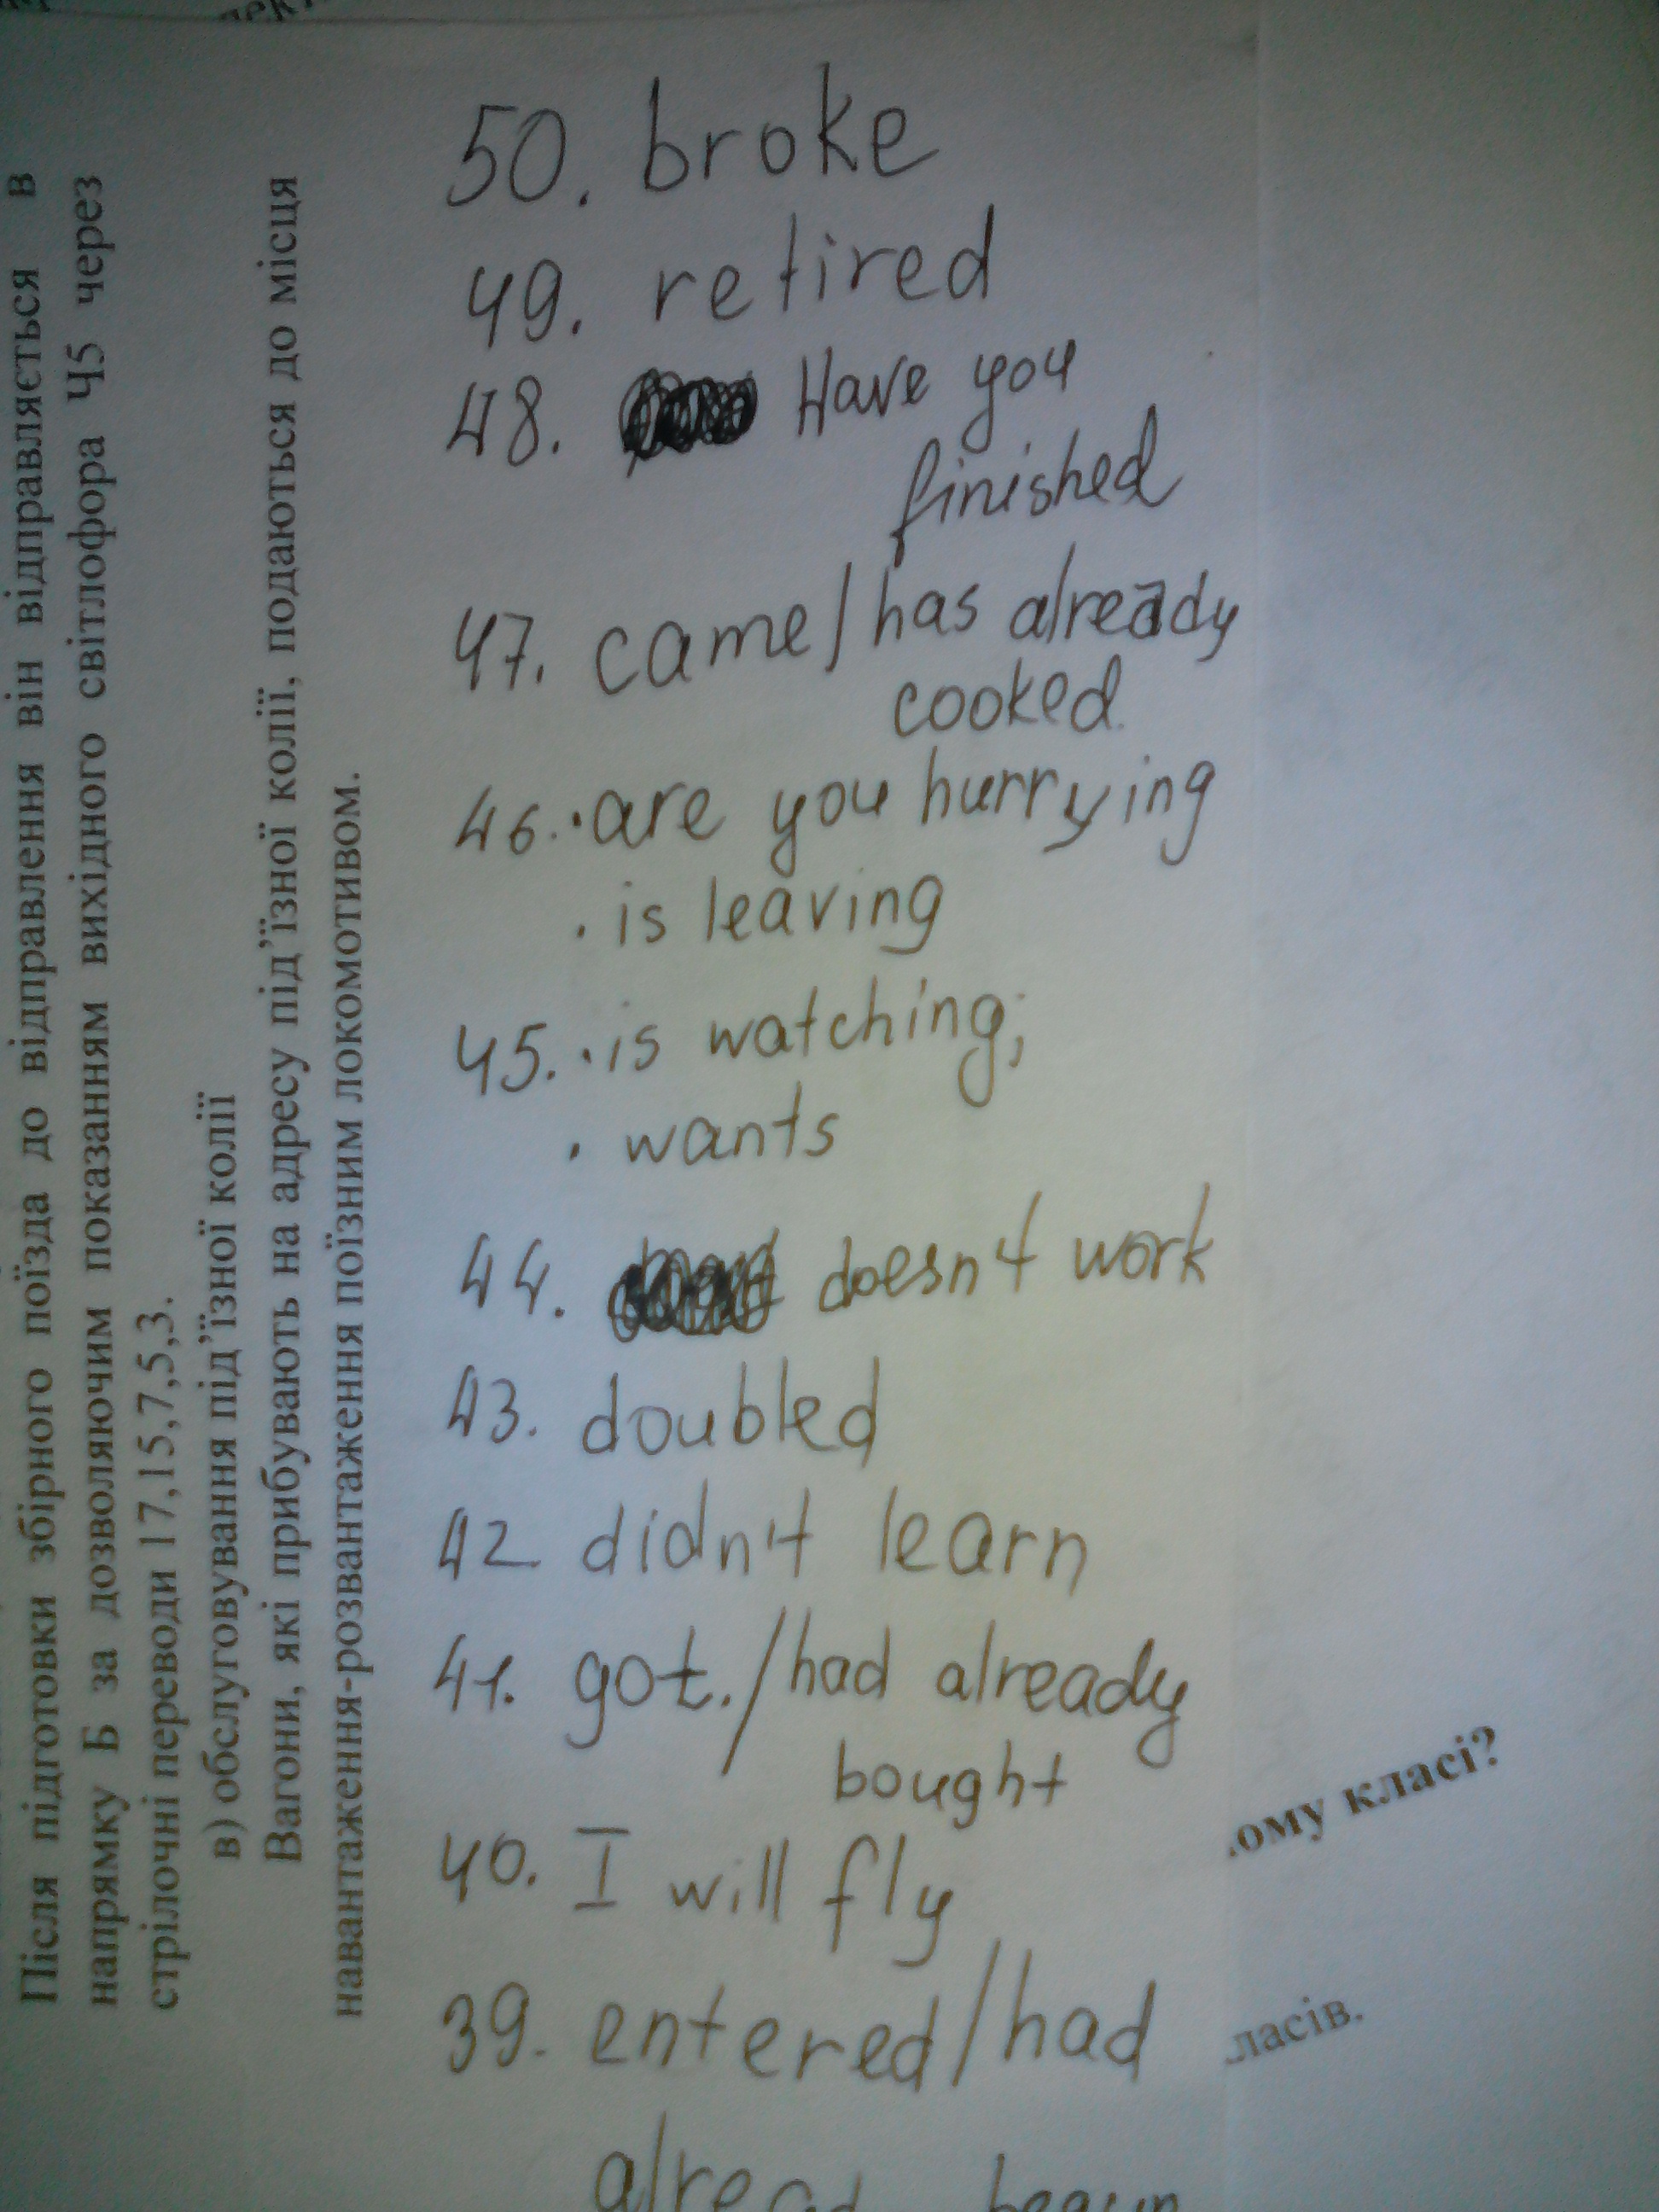 50. broke
49. retired
48. Have you
finished
47. came/has already
cooked
46. · are you hurrying
· is leaving
45. · is watching;
· wants
44. doesn't work
43. doubled
42 didn't learn
41. got./had already
bought
40. I will fly
39. entered/had
begun
Після підготовки збірного поїзда до відправлення він відправляється в
напрямку Б за дозволяючим показанням вихідного світлофора Ч5 через
стрілочні переводи 17,15,7,5,3.
в) обслуговування під'їзної колії
Вагони, які прибувають на адресу під'їзної колії, подаються до місця
навантаження-розвантаження поїзним локомотивом.
.ому класі?
ласів.